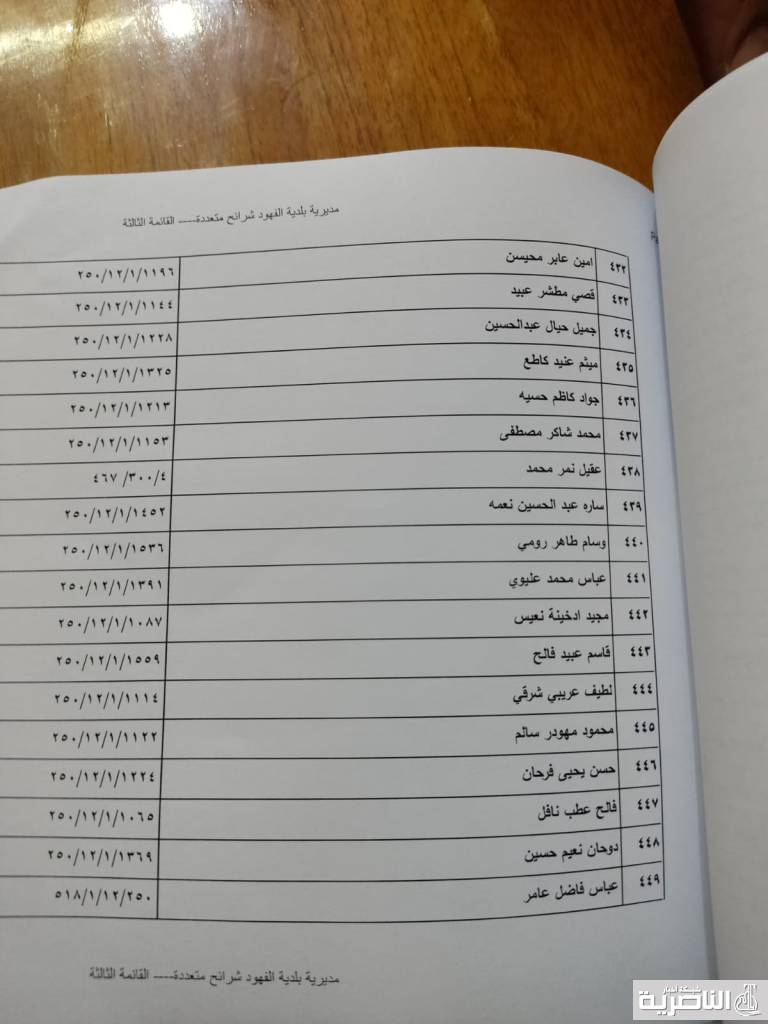 مديرية بلدية الفهود شرائح متعددة---- القائمة الثالثة
٤٣٢ امين عابر محيسن ٢٥٠/١٢/١/١١٩٦
٤٣٣ قصي مطشر عبيد ٢٥٠/١٢/١/١١٤٤
٤٣٤ جميل حيال عبدالحسين ٢٥٠/١٢/١/١٢٢٨
٤٣٥ ميثم عنيد كاطع ٢٥٠/١٢/١/١٣٢٥
٤٣٦ جواد كاظم حسيه ٢٥٠/١٢/١/١٢١٣
٤٣٧ محمد شاكر مصطفى ٢٥٠/١٢/١/١١٥٣
٤٣٨ عقيل نمر محمد ٤٦٧ /٣٠٠/٤
٤٣٩ ساره عبد الحسين نعمه ٢٥٠/١٢/١/١٤٥٢
٤٤٠ وسام طاهر رومي ٢٥٠/١٢/١/١٥٣٦
٤٤١ عباس محمد عليوي ٢٥٠/١٢/١/١٣٩١
٤٤٢ مجيد ادخينة نعيس ٢٥٠/١٢/١/١٠٨٧
٤٤٣ قاسم عبيد فالح ٢٥٠/١٢/١/١٥٥٩
٤٤٤ لطيف عريبي شرقي ٢٥٠/١٢/١/١١١٤
٤٤٥ محمود مهودر سالم ٢٥٠/١٢/١/١١٢٢
٤٤٦ حسن يحيى فرحان ٢٥٠/١٢/١/١٢٢٤
٤٤٧ فالح عطب نافل ٢٥٠/١٢/١/١٠٦٥
٤٤٨ دوحان نعيم حسين ٢٥٠/١٢/١/١٣٦٩
٤٤٩ عباس فاضل عامر ٥١٨/١/١٢/٢٥٠
مديرية بلدية الفهود شرائح متعددة---- القائمة الثالثة
شبكة أخبار
الناصرية